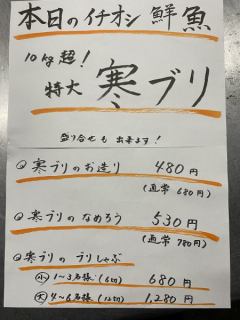 本日のイチオシ鮮魚
10kg超!
特大 寒ブリ
盛り合せも出来ます!
寒ブリのお造り 480円
(通常 680円)
寒ブリのなめろう 530円
(通常 780円)
寒ブリのブリしゃぶ
小 1〜3名様(6切) 680円
大 4〜6名様(12切) 1,280円